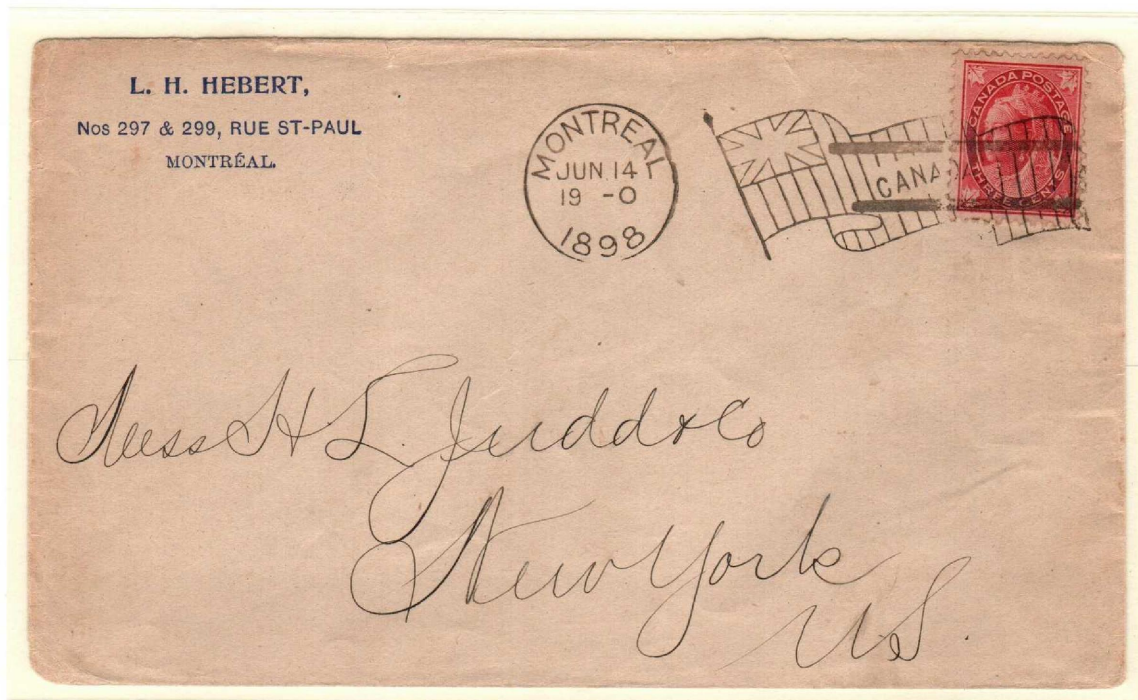 L. H. HEBERT,
Nos 297 & 299, RUE ST-PAUL
MONTRÉAL.
MONTREAL
JUN 14
19 -0
1898
CANADA POSTAGE
THREE CENTS
Mess H L Judd & Co
New York
US.